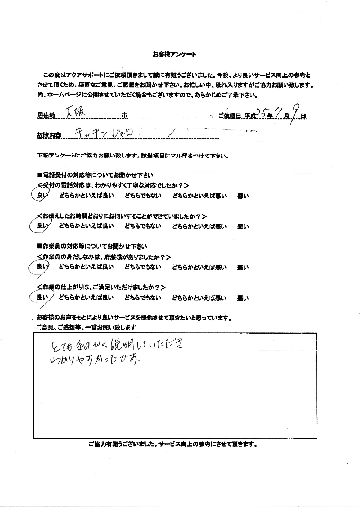 お客様アンケート
この度はアクアサポートにご依頼頂きまして誠に有難うございました。今後、より良いサービス向上の参考と
させて頂くため、店舗のご意見、ご感想をお聞かせ下さい。お忙しい中、恐れ入りますがご協力お願い致します。
尚、ホームページに公開させていただく場合もございますので、あらかじめご了承下さい。
居住地 市 ご依頼日 平成25年7月9日
依頼内容 キッチン
下記アンケートにご協力お願い致します。該当項目にマル印をつけて下さい。
■電話受付の対応等についてお聞かせ下さい
<受付の電話対応は、わかりやすく丁寧な対応でしたか?>
良い どちらかといえば良い どちらでもない どちらかといえば悪い 悪い
<お伝えしたお時間どおりにお伺いすることができていましたか?>
良い どちらかといえば良い どちらでもない どちらかといえば悪い 悪い
■作業員の対応等についてお聞かせ下さい
<作業員の身だしなみは、清潔感がありましたか?>
良い どちらかといえば良い どちらでもない どちらかといえば悪い 悪い
<作業の仕上がりは、ご満足いただけましたか?>
良い どちらかといえば良い どちらでもない どちらかといえば悪い 悪い
お客様のお声をもとにより良いサービスを提供させて頂きたいと思っています。
ご意見、ご感想等、一言お願い致します
とても 説明していただき
わかりやすかったです。
ご協力有難うございました。サービス向上の参考にさせて頂きます。